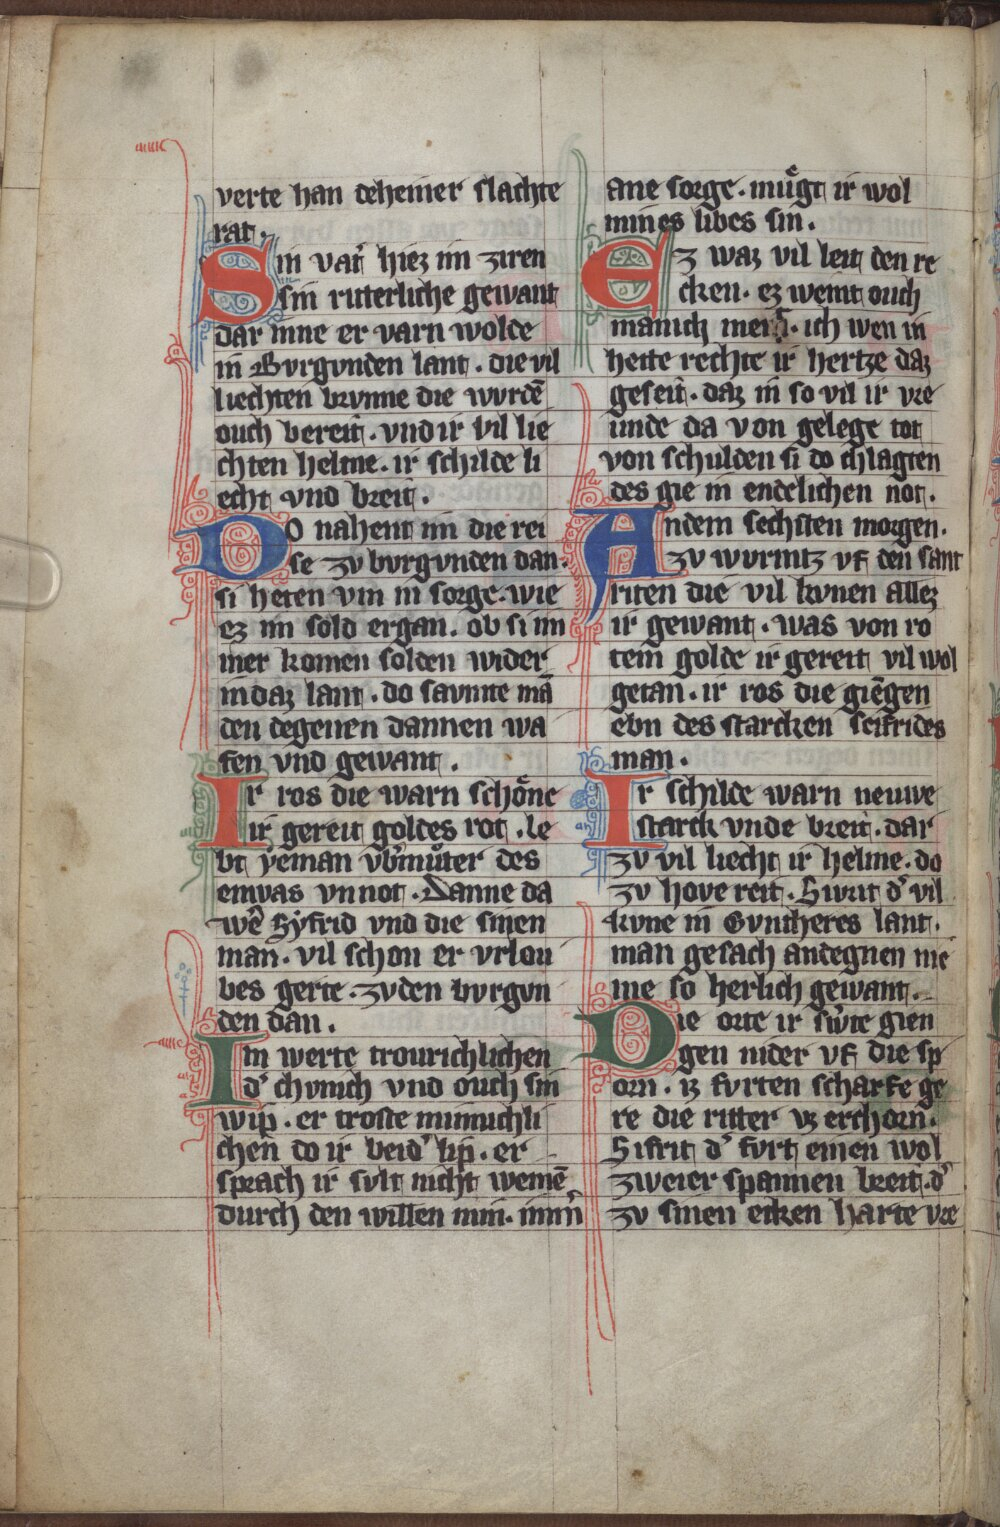 verte han deheiner slachte
rat.
Sin vat͛ hiez im ziren
sin ritterliche gewant
dar inne er varn wolde
in Bvrgvnden lant . die vil
liechten brvnne die wvrdē
ouch bereit . vnd ir vil lie
chten helme . ir schilde li
echt vnd breit .
Do nahent im die rei
se zv bvrgvnden dan .
si heten vm in sorge . wie
ez im sold ergan . ob si im
mer komen solden wider
in daz lant . do savmte mā
den degenen dannen wa
fen vnd gewant .
Ir ros die warn schoͤne
ir gereit goldes rot . le
bt yeman vb͛muͦter des
enwas vnnot . Danne da
wē Syfrid vnd die sinen
man . vil schon er vrlou
bes gerte . zv den bvrgvn
den dan .
Im werte trourichlichen
d͛ chvnich vnd ouch sin
wip . er troste minnichli
chen do ir beid͛ lip . er
sprach ir svlt nicht weinē
durch den willen min . imm͛
ane sorge . muͤgt ir wol
mines libes sin .
Ez waz vil leit den re
cken . ez weint ouch
manich meit . ich wen in
hette rechte ir hertze daz
geseit . daz in so vil ir vre
unde da von gelege tot
von schulden si do chlagten
des gie in endelichen not .
An dem sechsten morgen .
zv wvrmtz vf den sant
riten die vil kvnen allez
ir gewant . was von ro
tem golde ir gereit vil wol
getan . ir ros die giēgen
ebn des starcken seifrides
man .
Ir schilde warn neuwe
starck vnde breit . dar
zv vil liecht ir helme . do
zv hove reit . Sivrit d͛ vil
kvne in Gvntheres lant .
man gesach an degnen nie
me so herlich gewant .
Die orte ir sw͛te gien
gen nider vf die sp
orn . iz fvrten scharfe ge
re die ritter vz erchorn .
Sifrit d͛ fvrt einen wol
zweier spannen breit . d͛
zv sinen ecken harte vre